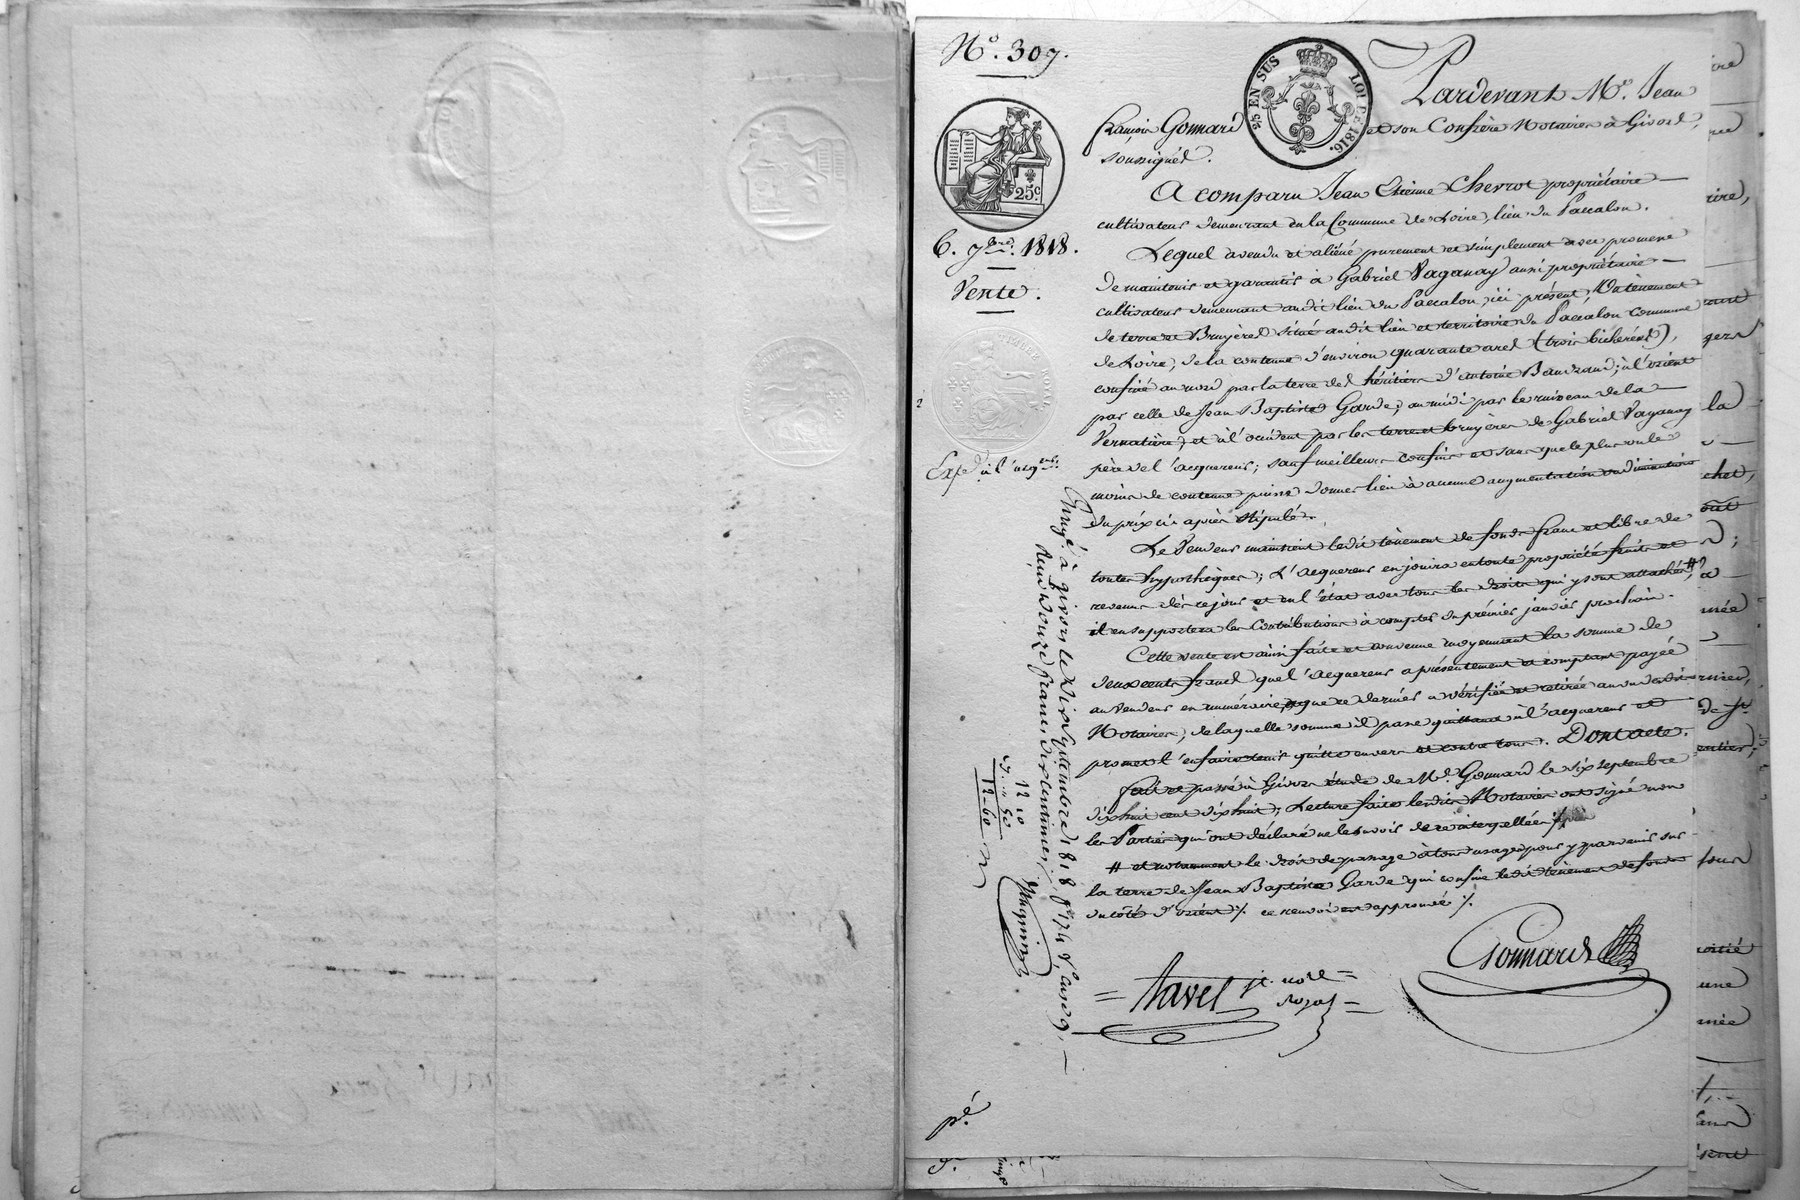 N.º 307.
25 EN SUS
LOI DE 1816.
25c
6. 7bre. 1818.
Vente.
TIMBRE ROYAL
Pardevant Me. Jean
françois Gonnard et son Confrère Notaires à Givors,
soussignés.
A comparu Jean Etienne Chevrot propriétaire
cultivateur demeurant en la Commune de Loire, lieu du Paccalon.
Lequel a vendu et aliéné purement et simplement avec promesse
de maintenir et garantir à Gabriel Vaganay aussi propriétaire
cultivateur demeurant audit lieu du Paccalon, ici présent, Un tènement
de terre et Bruyères situé audit lieu et territoire du Paccalon commune
de Loire, de la contenue d'environ quarante ares (trois bicherées),
confiné au nord par la terre des héritiers d'antoine Bauzand; à l'orient
par celle de Jean Baptiste Garde; au midi par le ruisseau de la
Vernatière; et à l'occident par les terre et bruyères de Gabriel Vaganay
père de l'acquereur; sauf meilleurs confins et sans que le plus ou le
moins de contenue puisse donner lieu à aucune augmentation ou diminution
du prix ci après stipulé.
Le Vendeur maintient ledit tènement de fonds franc et libre de
toutes hypothèques; L'acquereur en jouira en toute propriété fruits et
revenus dès ce jour et en l'état avec tous les droits qui y sont attachés #
il en supportera les Contributions à compter du premier janvier prochain.
Cette vente est ainsi faite et convenue moyennant la somme de
deux cents francs que l'acquereur a présentement et comptant payée
au Vendeur en numéraire, que ce dernier a vérifiée et retirée au vu desdits
Notaires; de laquelle somme il passe quittance à l'acquereur et
promet l'en faire tenir quitte envers et contre tous. Dont acte.
fait et passé à Givors étude de Me. Gonnard le six septembre
dix huit cent dix huit; Lecture faite lesdits Notaires ont signé non
les Parties qui ont déclaré ne le savoir de ce interpellées ./.
# et notamment le droit de passage à tous usages pour y parvenir sur
la terre de Jean Baptiste Garde qui confine ledit tènement de fonds
du côté d'orient ./. ce renvoi est approuvé ./.
Gonnard
= Tavel je. nore =
royal =
Expd. à l'acqr.
à givors le dix septembre 1818 fo 174 Vo Case 9,
Reçu douze francs dix centimes
12 10
" 50
12-60